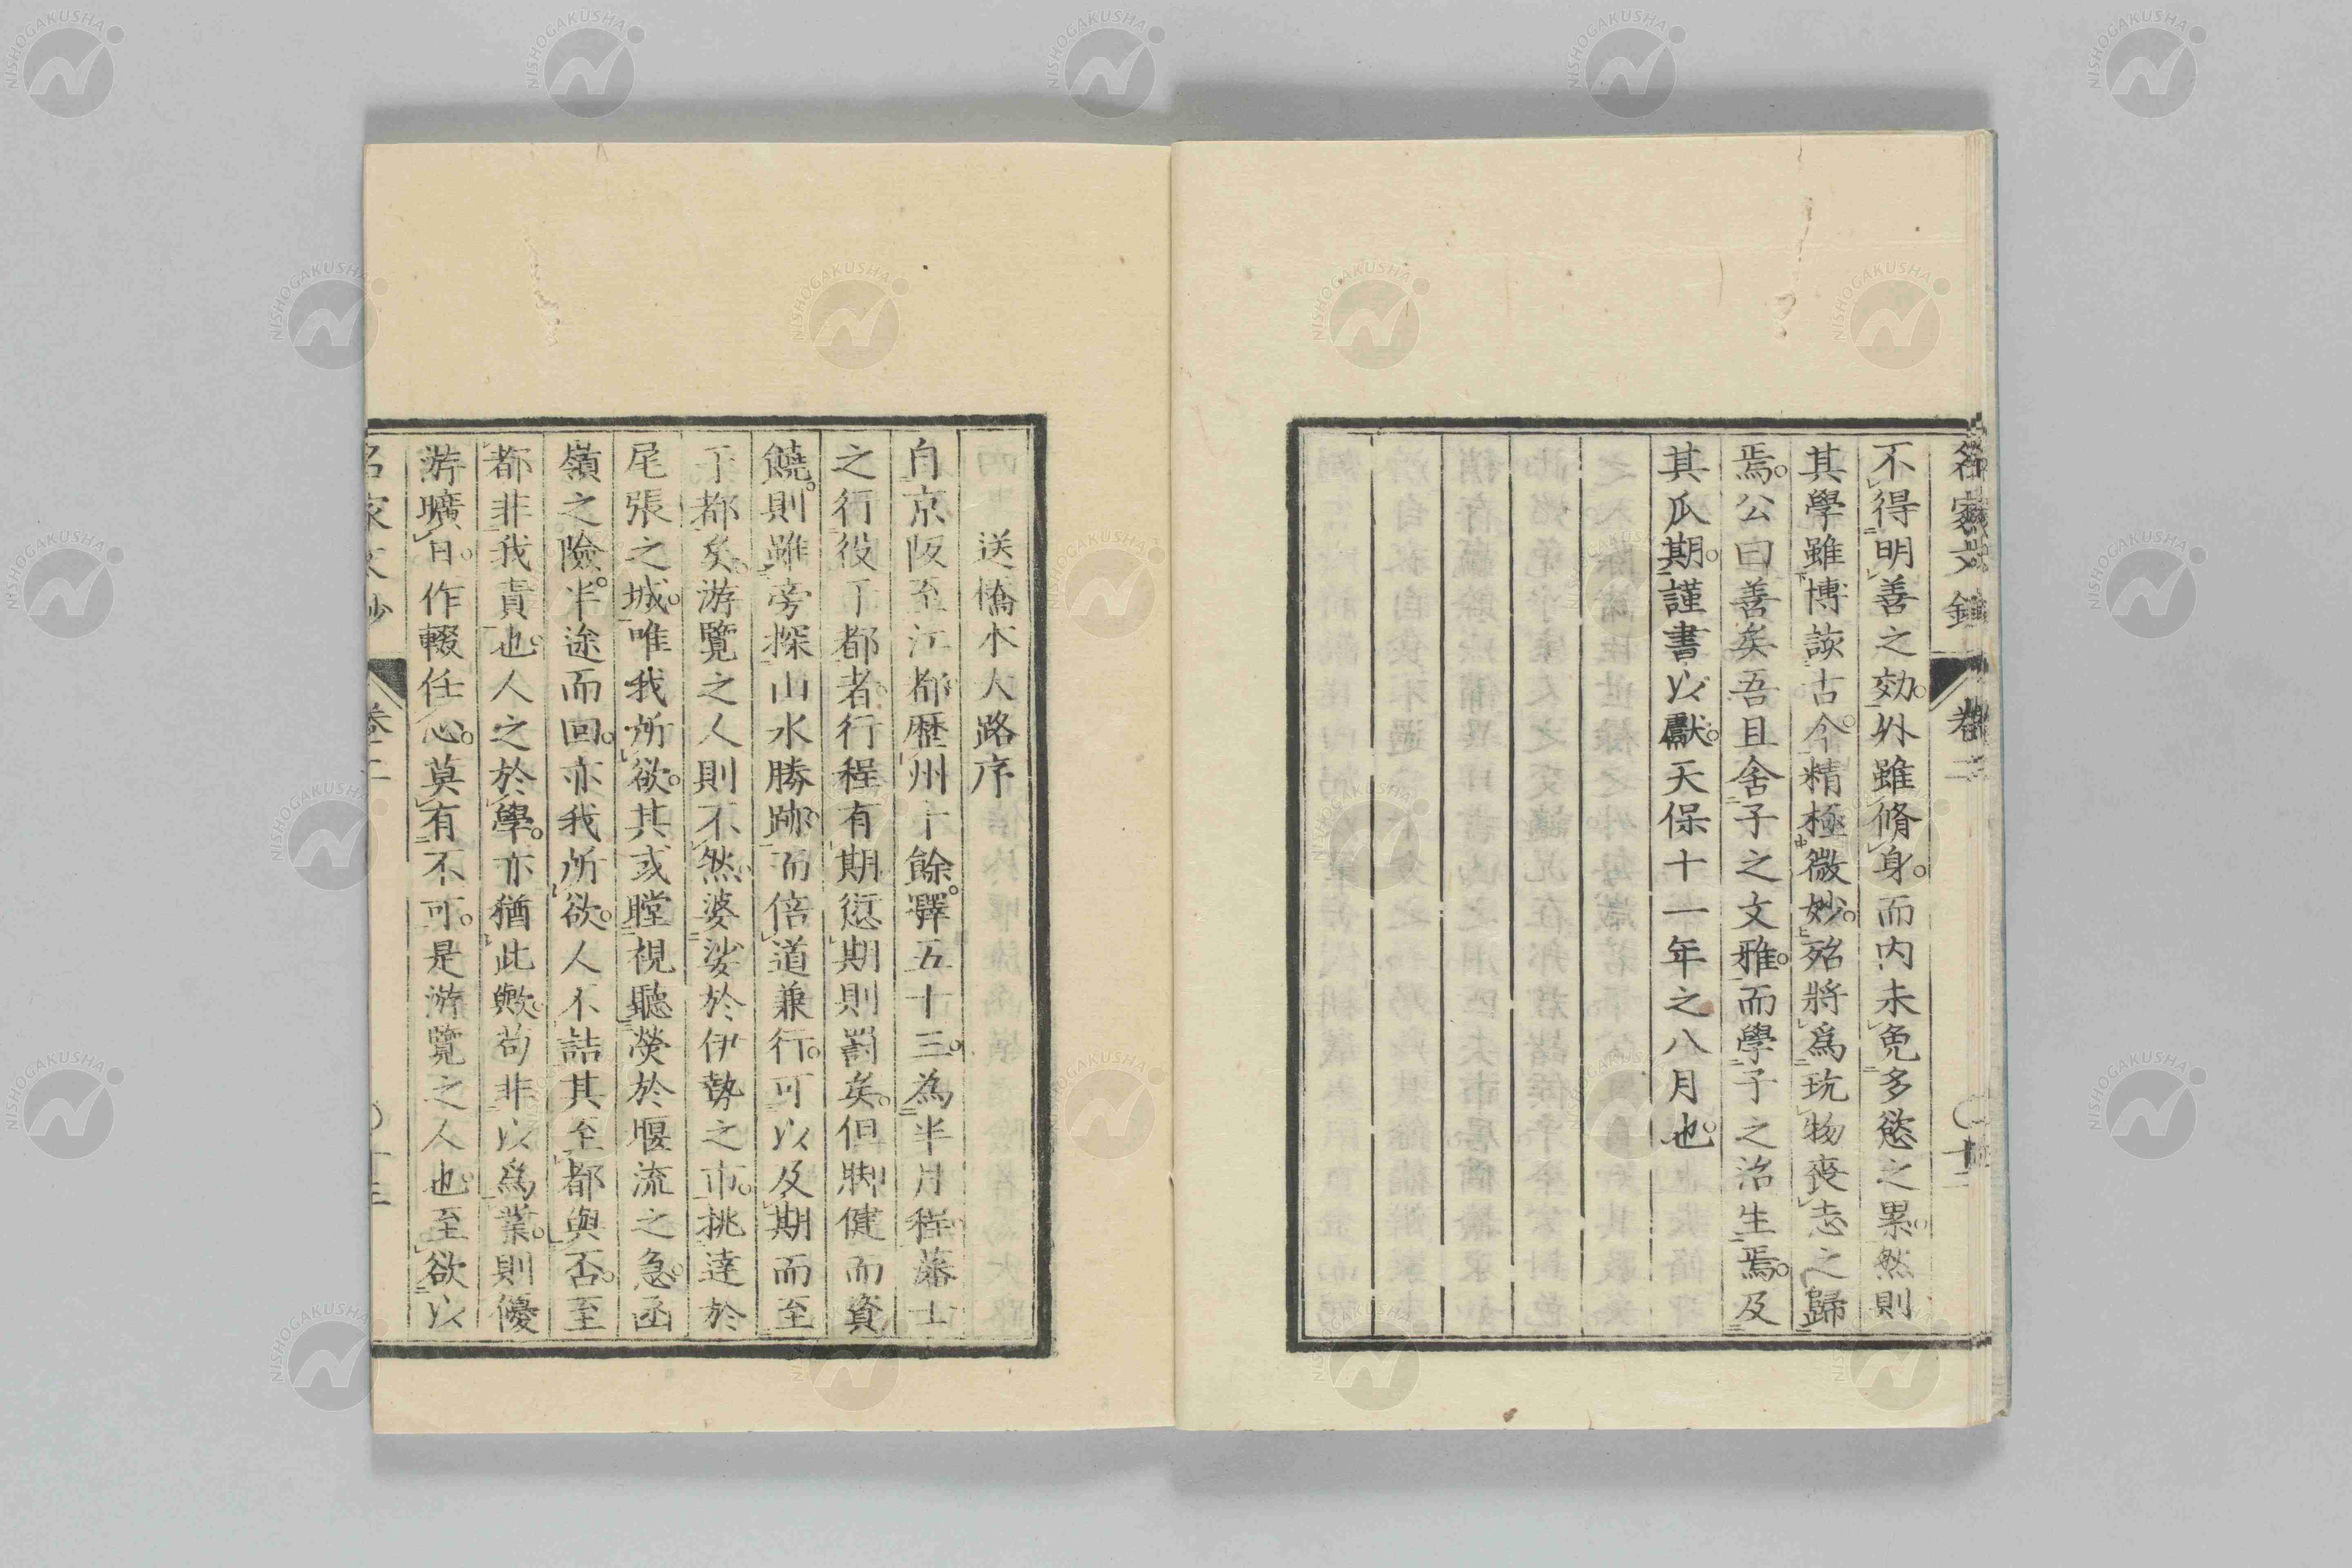 名家文鈔 卷二
不得明善之効。外雖脩身。而内未免多慾之累。然則
其學雖博該古今。精極微妙。殆將爲玩物喪志之歸
焉。公曰善矣吾且舍子之文雅。而學子之治生焉。及
其瓜期。謹書以獻。天保十一年之八月也。
送橋本大路序
自京阪至江都。歷州十餘。驛五十三。為半月程。藩士
之行役于都者。行程有期。愆期則罰矣。但脚健而資
饒。則雖旁探山水勝跡。而倍道兼行。可以及期而至
于都矣。游覽之人則不然。婆娑於伊勢之市。挑達於
尾張之城。唯我所欲。其或瞠視聽熒於堰流之急。函
嶺之險。半途而回。亦我所欲。人不詰其至都與否。至
都非我責也。人之於學。亦猶此歟。苟非以爲業。則優
游曠日。作輟任心。莫有不可。是游覽之人也。至欲以
名家文鈔 卷二 〇十三
NISHOGAKUSHA